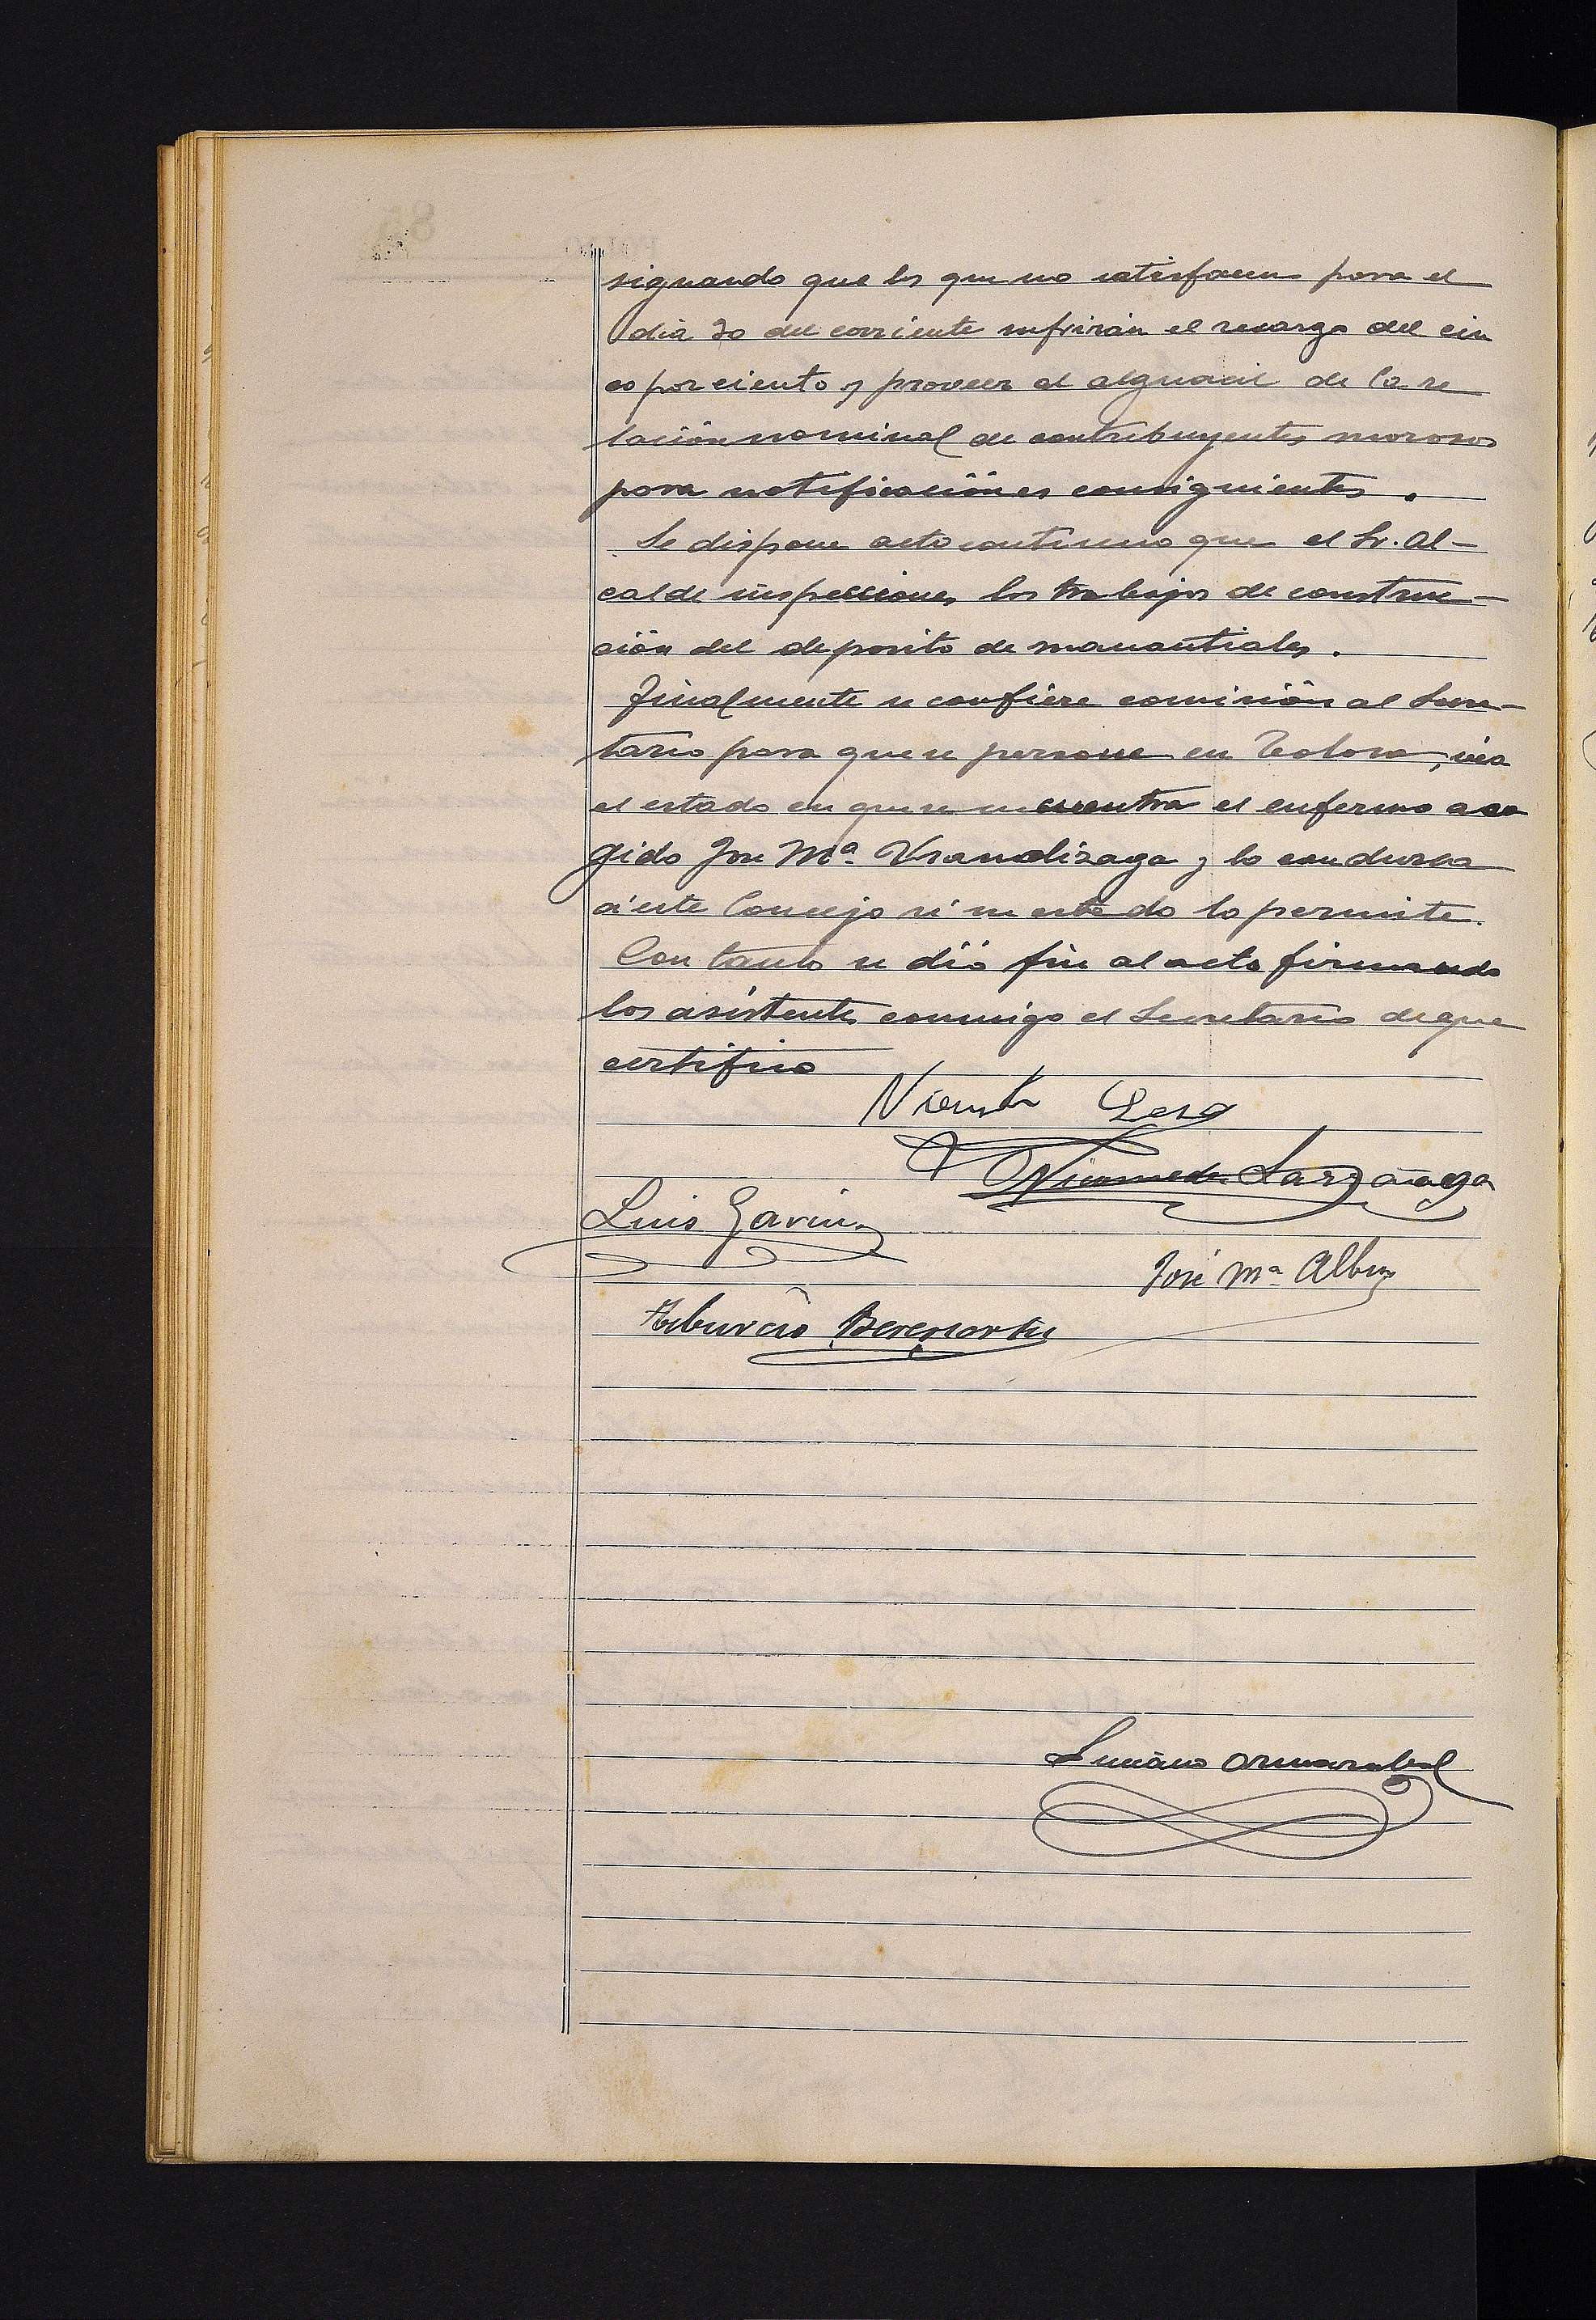 signando que los que no satisfacen para el
día 30 del corriente sufrirán el recargo del cin
co por ciento y proveer al alguacil de la re
lación nominal de contribuyentes morosos
para notificaciones consiguientes.
Se dispone acto continuo que el Sr. Al-
calde inspeccione los trabajos de construc-
ción del deposito de manantiales.
Finalmente se confiere comisión al Secre-
tario para que se persone en Tolosa, vea
el estado en que se encuentra el enfermo aco
gido José Mª Urandizaga y lo conduzca
a este Concejo si su estado lo permite.
Con tanto se dió fin al acto firmando
los asistentes conmigo el Secretario de que
certifico
Vicente
Nicomedes Larrañaga
Luis Gavin
José Mª
Tiburcio Bereciartu
Luciano Ormazabal